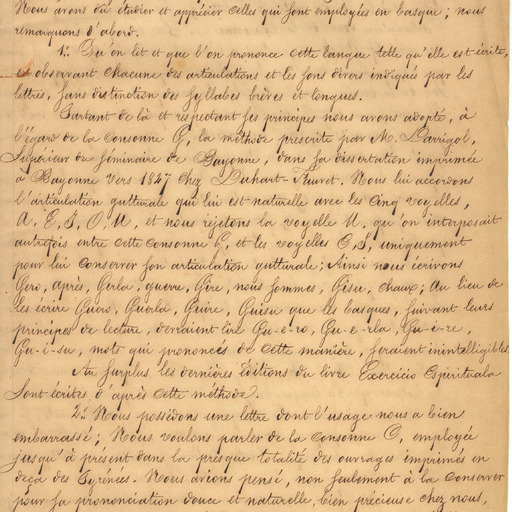 Nous avons dû étudier et apprécier celles qui sont employées en basque ; nous
remarquons d'abord.
1.° Qu'on lit et que l'on prononce cette langue telle qu'elle est écrite,
en observant chacune des articulations et les sons divers indiqués par les
lettres, sans distinction des syllabes brèves et longues.
Partant de là et respectant ses principes nous avons adopté, à
l'égard de la consonne G, la méthode prescrite par M. Darrigol,
Supérieur du Séminaire de Bayonne, dans sa dissertation imprimée
à Bayonne vers 1827 chez Duhart-Fauvet. Nous lui accordons
l'articulation gutturale qui lui est naturelle avec les cinq voyelles,
A, E, I, O, U, et nous rejetons la voyelle U, qu'on interposait
autrefois entre cette consonne G, et les voyelles E, I, uniquement
pour lui conserver son articulation gutturale ; Ainsi nous écrivons
Gero, après, Gerla, guerre, Gire, nous sommes, Gisu, chaux ; Au lieu de
les écrire Guero, Guerla, Guire, Guisu que les basques, suivant leurs
principes de lecture, devraient lire Gu-e-ro, Gu-e-rla, Gu-i-re,
Gu-i-su, mots qui prononcés de cette manière, seraient inintelligibles.
Au surplus les dernières éditions du livre Exercicio Espirituala
sont écrites d'après cette méthode.
2.° Nous possédons une lettre dont l'usage nous a bien
embarrassé ; Nous voulons parler de la consonne C, employée
jusqu'à présent dans la presque totalité des ouvrages imprimés en
deça des Pyrénées. Nous avions pensé, non seulement à la conserver
pour sa prononciation douce et naturelle, bien précieuse chez nous,